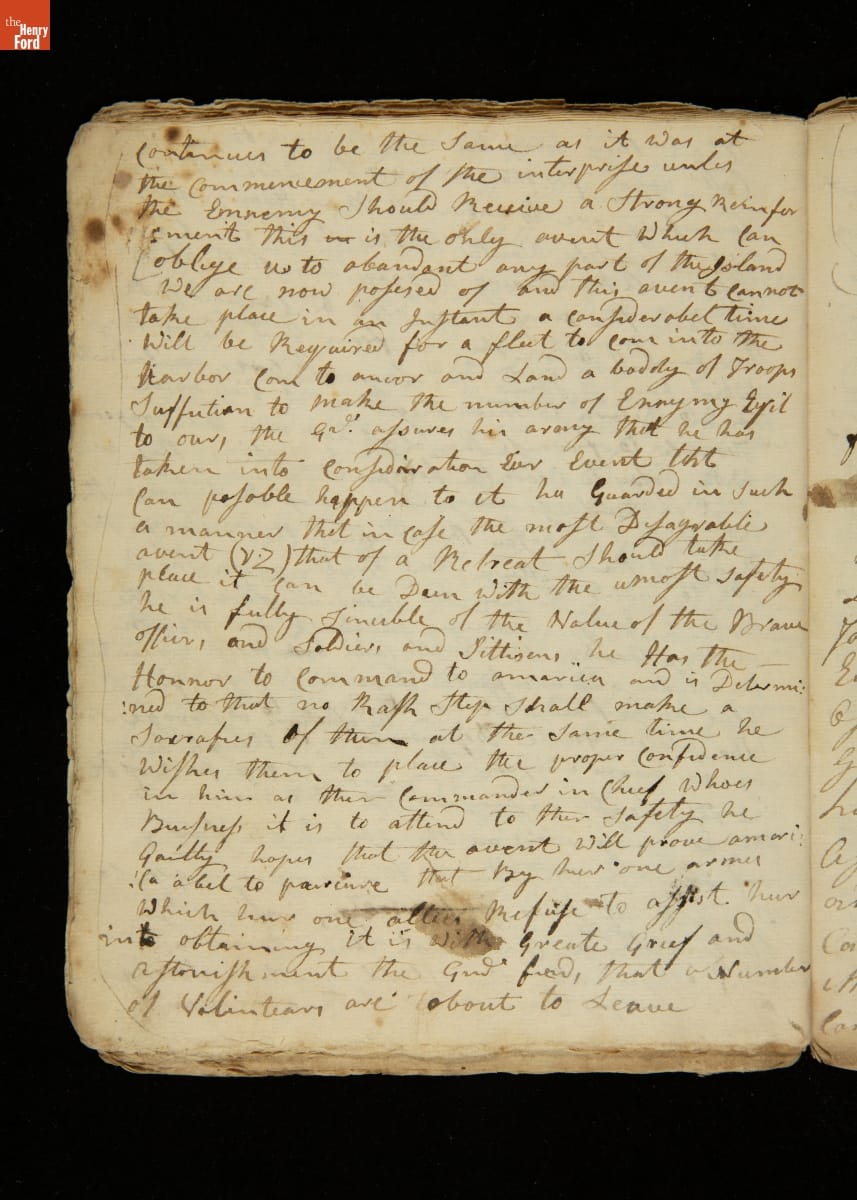 the
Henry
Ford
Continues to be the Same as it was at
the Commencement of the interprise unles
the Ennemy Should Receive a Strong Reinfor
cment this is the only avent Which Can
oblige us to abandant any part of the Island
We are now posesed of and this avent Cannot
take place in an Instant a Considerabel time
will be Required for a fleet to Com into the
Harbor Com to ancor and Land a baddy of Troops
Suffution to make the number of Ennymy Eqil
to our, the Gnl. assures his army that he has
taken into Consideration Eur Event tht
Can posoble happen to it ha Guarded in Such
a manner that in Case the most Disagrable
avent (viz) that of a Retreat Should take
place it Can be Deen with the utmost Safety
he is fully Sincuble of the Value of the Brave
officers and Soldiers and Sittisens he Has the
Honnor to Command to amarica and is Determi:
:ned to that no Rash Step Shall make a
Sacrafies of them at the Same time he
Wishes them to place the proper Confidence
in him as ther Commander in Cheef Whoes
Buesness it is to attend to ther Safety he
hopes that the avent Will prove amari:
:Ca abel to that By hur one armes
Which hur one allies Refuse to assist hur
into obtaining it is with Greate Grief and
astonishment the Gnd finds that a Number
of Volintears are about to Leave